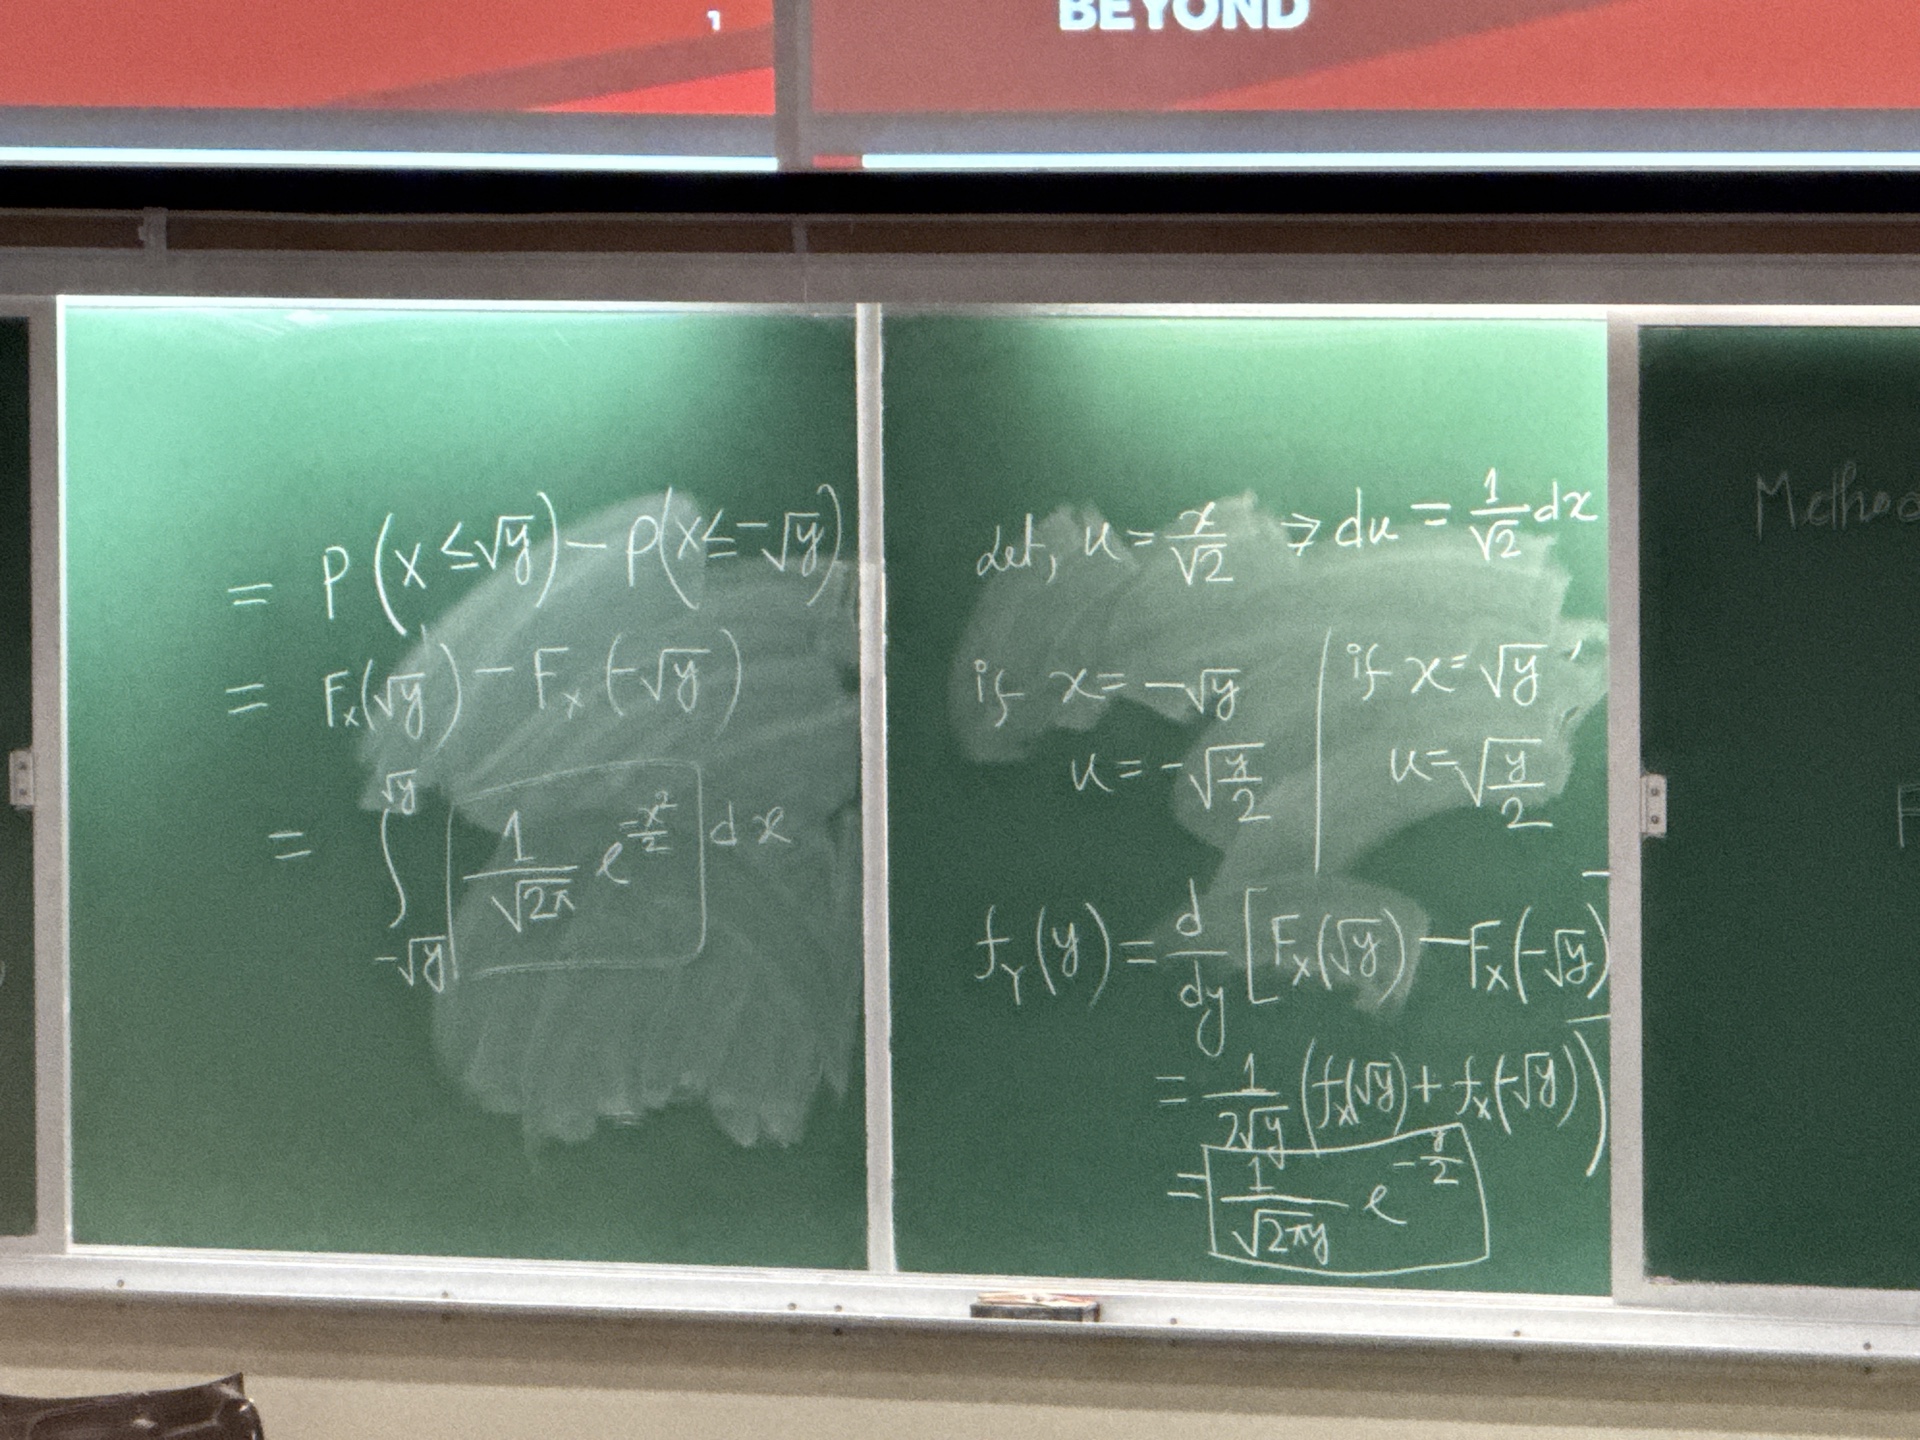 1
BEYOND
= P(X ≤ √y) − P(X ≤ −√y)
= F_X(√y) − F_X(−√y)
= ∫_{−√y}^{√y} 1/√(2π) e^{−x²/2} dx
Let, u = x/√2 ⇒ du = 1/√2 dx
if x = −√y | if x = √y
u = −√(y/2) | u = √(y/2)
f_Y(y) = d/dy [F_X(√y) − F_X(−√y)
= 1/(2√y) (f_X(√y) + f_X(−√y))
= 1/√(2πy) e^{−y/2}